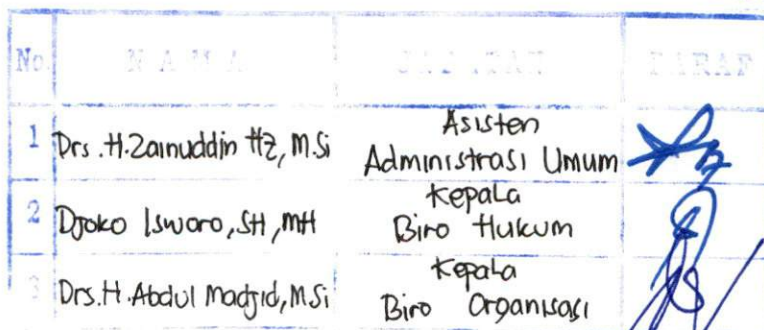 No NAMA JABATAN PARAF
1 Drs. H. Zainuddin HZ, M.Si Asisten Administrasi Umum
2 Djoko Isworo, SH, MH Kepala Biro Hukum
3 Drs. H. Abdul Madjid, M.Si Kepala Biro Organisasi